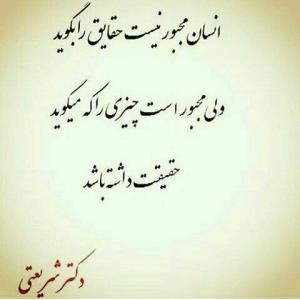 انسان مجبور نیست حقایق را بگوید
ولی مجبور است چیزی را که میگوید
حقیقت داشته باشد
دکتر شریعتی